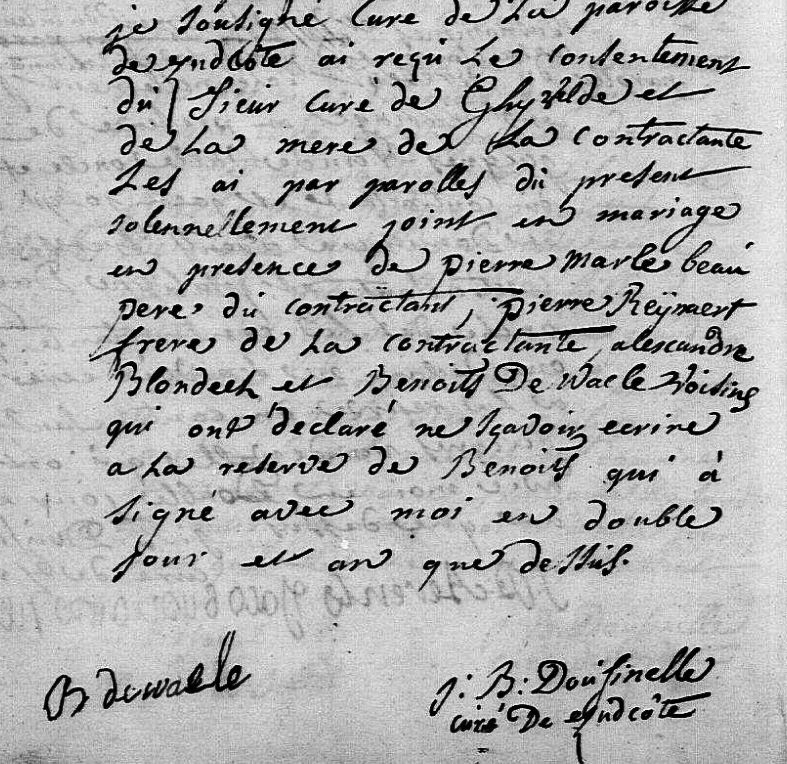 je soûsigné Curé de La paroisse
de zudcôte ai reçu Le consentement
du Sieur curé de Ghyvelde et
de La mere de La contractante
Les ai par parolles du present
solennellement joint en mariage
en presence de pierre marle beau
pere du contractant, pierre Reÿnaert
frere de La contractante, alexandre
Blondeel et Benoits De Waele Voisins
qui ont declaré ne sçavoir ecrire
a La reserve de Benoits qui à
signé avec moi en double
jour et an que dessus.
B dewaele
j: B: Dousinelle
curé De zudcôte